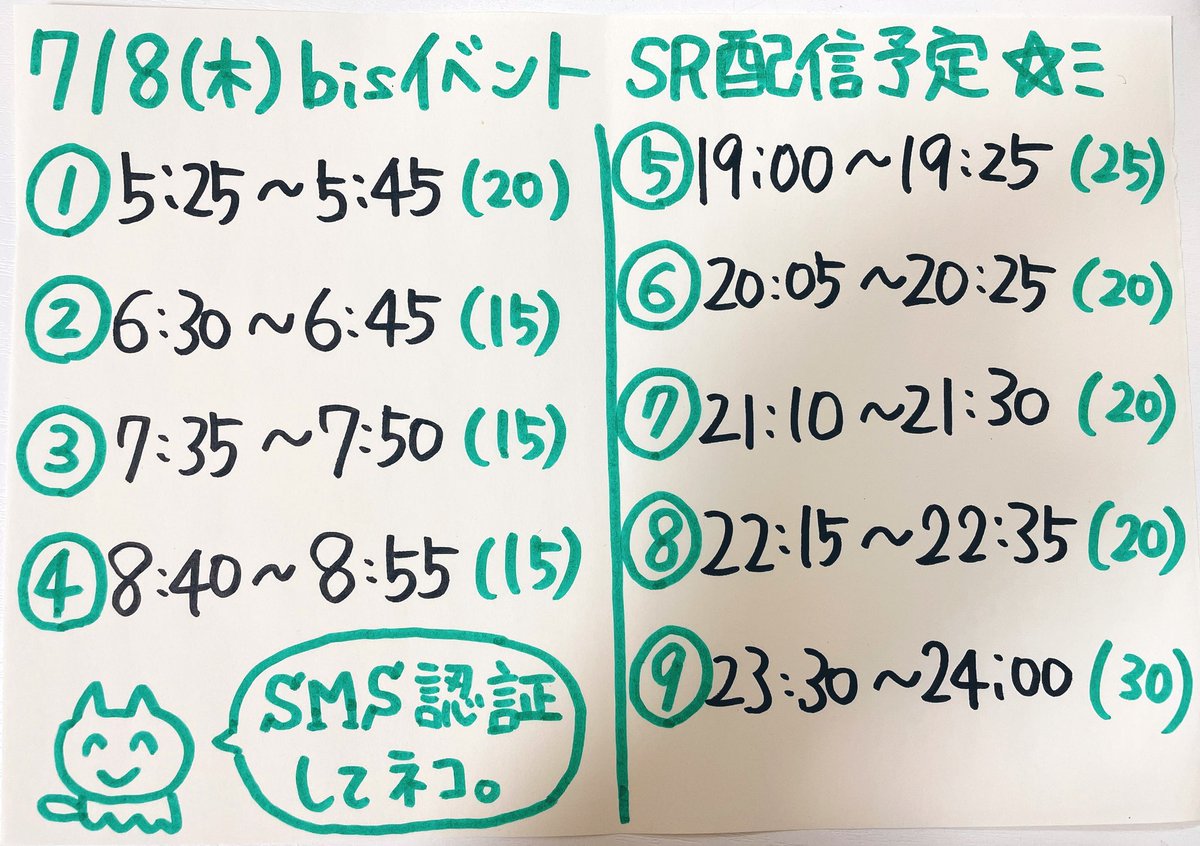 7/8(木)bisイベント SR配信予定☆ミ
①5:25～5:45(20)
②6:30～6:45(15)
③7:35～7:50(15)
④8:40～8:55(15)
SMS認証
してネコ。
⑤19:00～19:25(25)
⑥20:05～20:25(20)
⑦21:10～21:30(20)
⑧22:15～22:35(20)
⑨23:30～24:00(30)